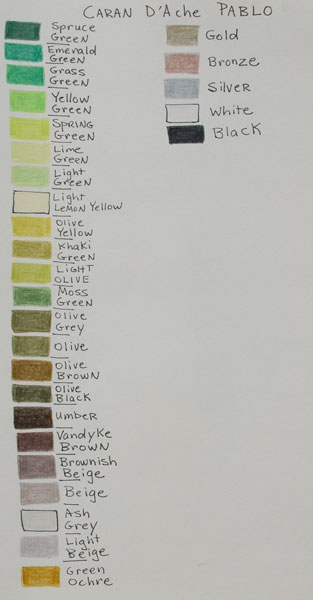 CARAN D'Ache PABLO
Spruce
GReeN
Emerald
GReen
GRass
GReeN
Yellow
GReeN
SpRiNG
GReen
Lime
GReen
Light
GReeN
Light
LemoN Yellow
Olive
Yellow
Khaki
GReen
LiGHT
OLIVE
Moss
GReen
Olive
Grey
Olive
Olive
BRowN
Olive
Black
UmbeR
VandyKe
BROWN
Brownish
Beige
Beige
Ash
Grey
Light
Beige
Green
Ochre
Gold
Bronze
SilveR
White
BLack